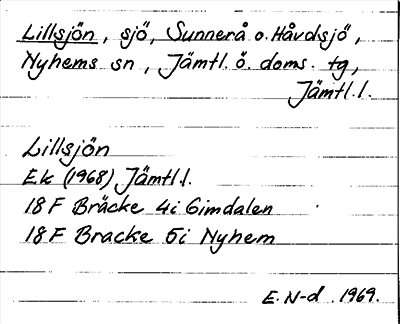 Lillsjön, sjö, Sunnerå o. Håvdsjö,
Nyhems sn, Jämtl. ö. doms. tg,
Jämtl.l.
Lillsjön
Ek (1968) Jämtl.l.
18 F Bräcke 4i Gimdalen
18 F Bracke 5i Nyhem
E. N-d. 1969.